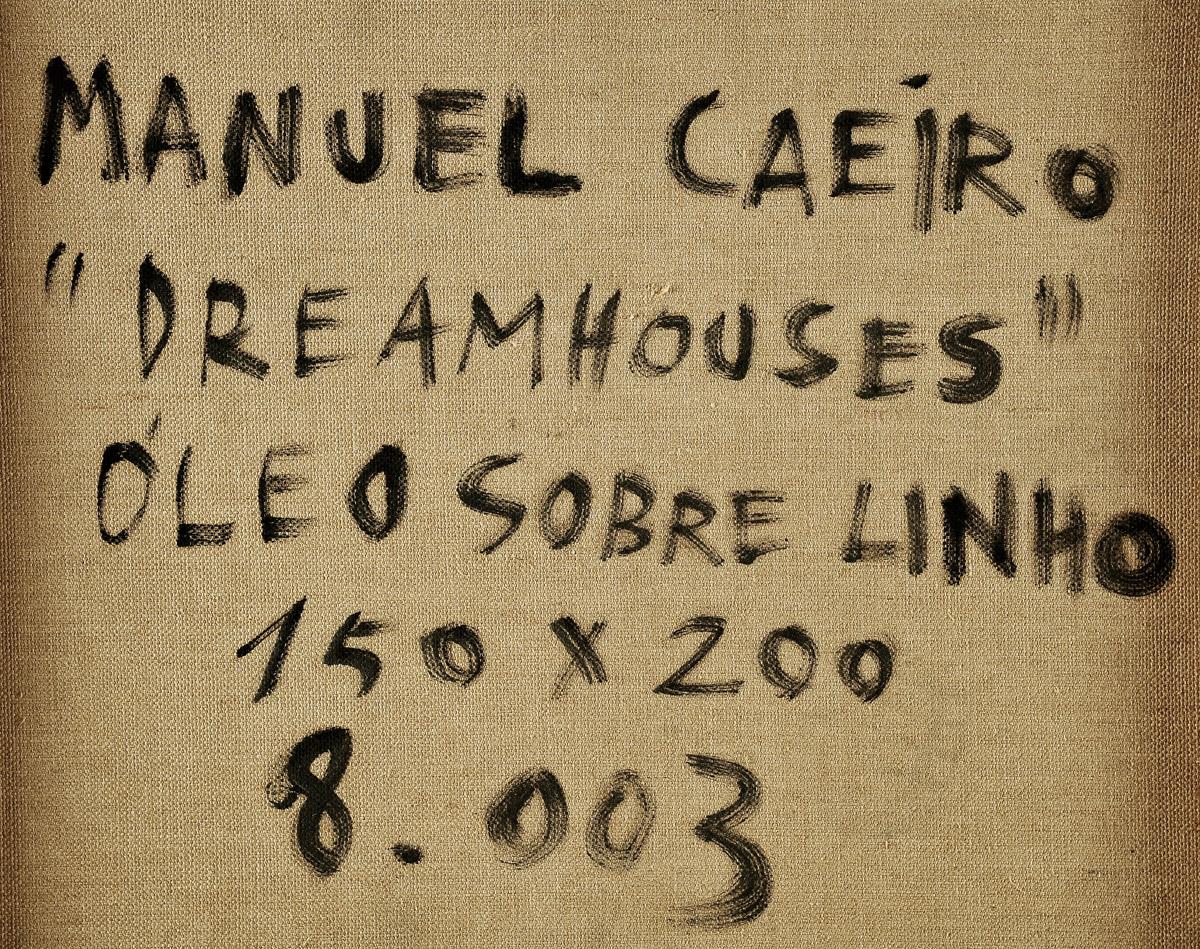 MANUEL CAEÍRO
"DREAMHOUSES"
ÓLEO SOBRE LINHO
150 X 200
8.003